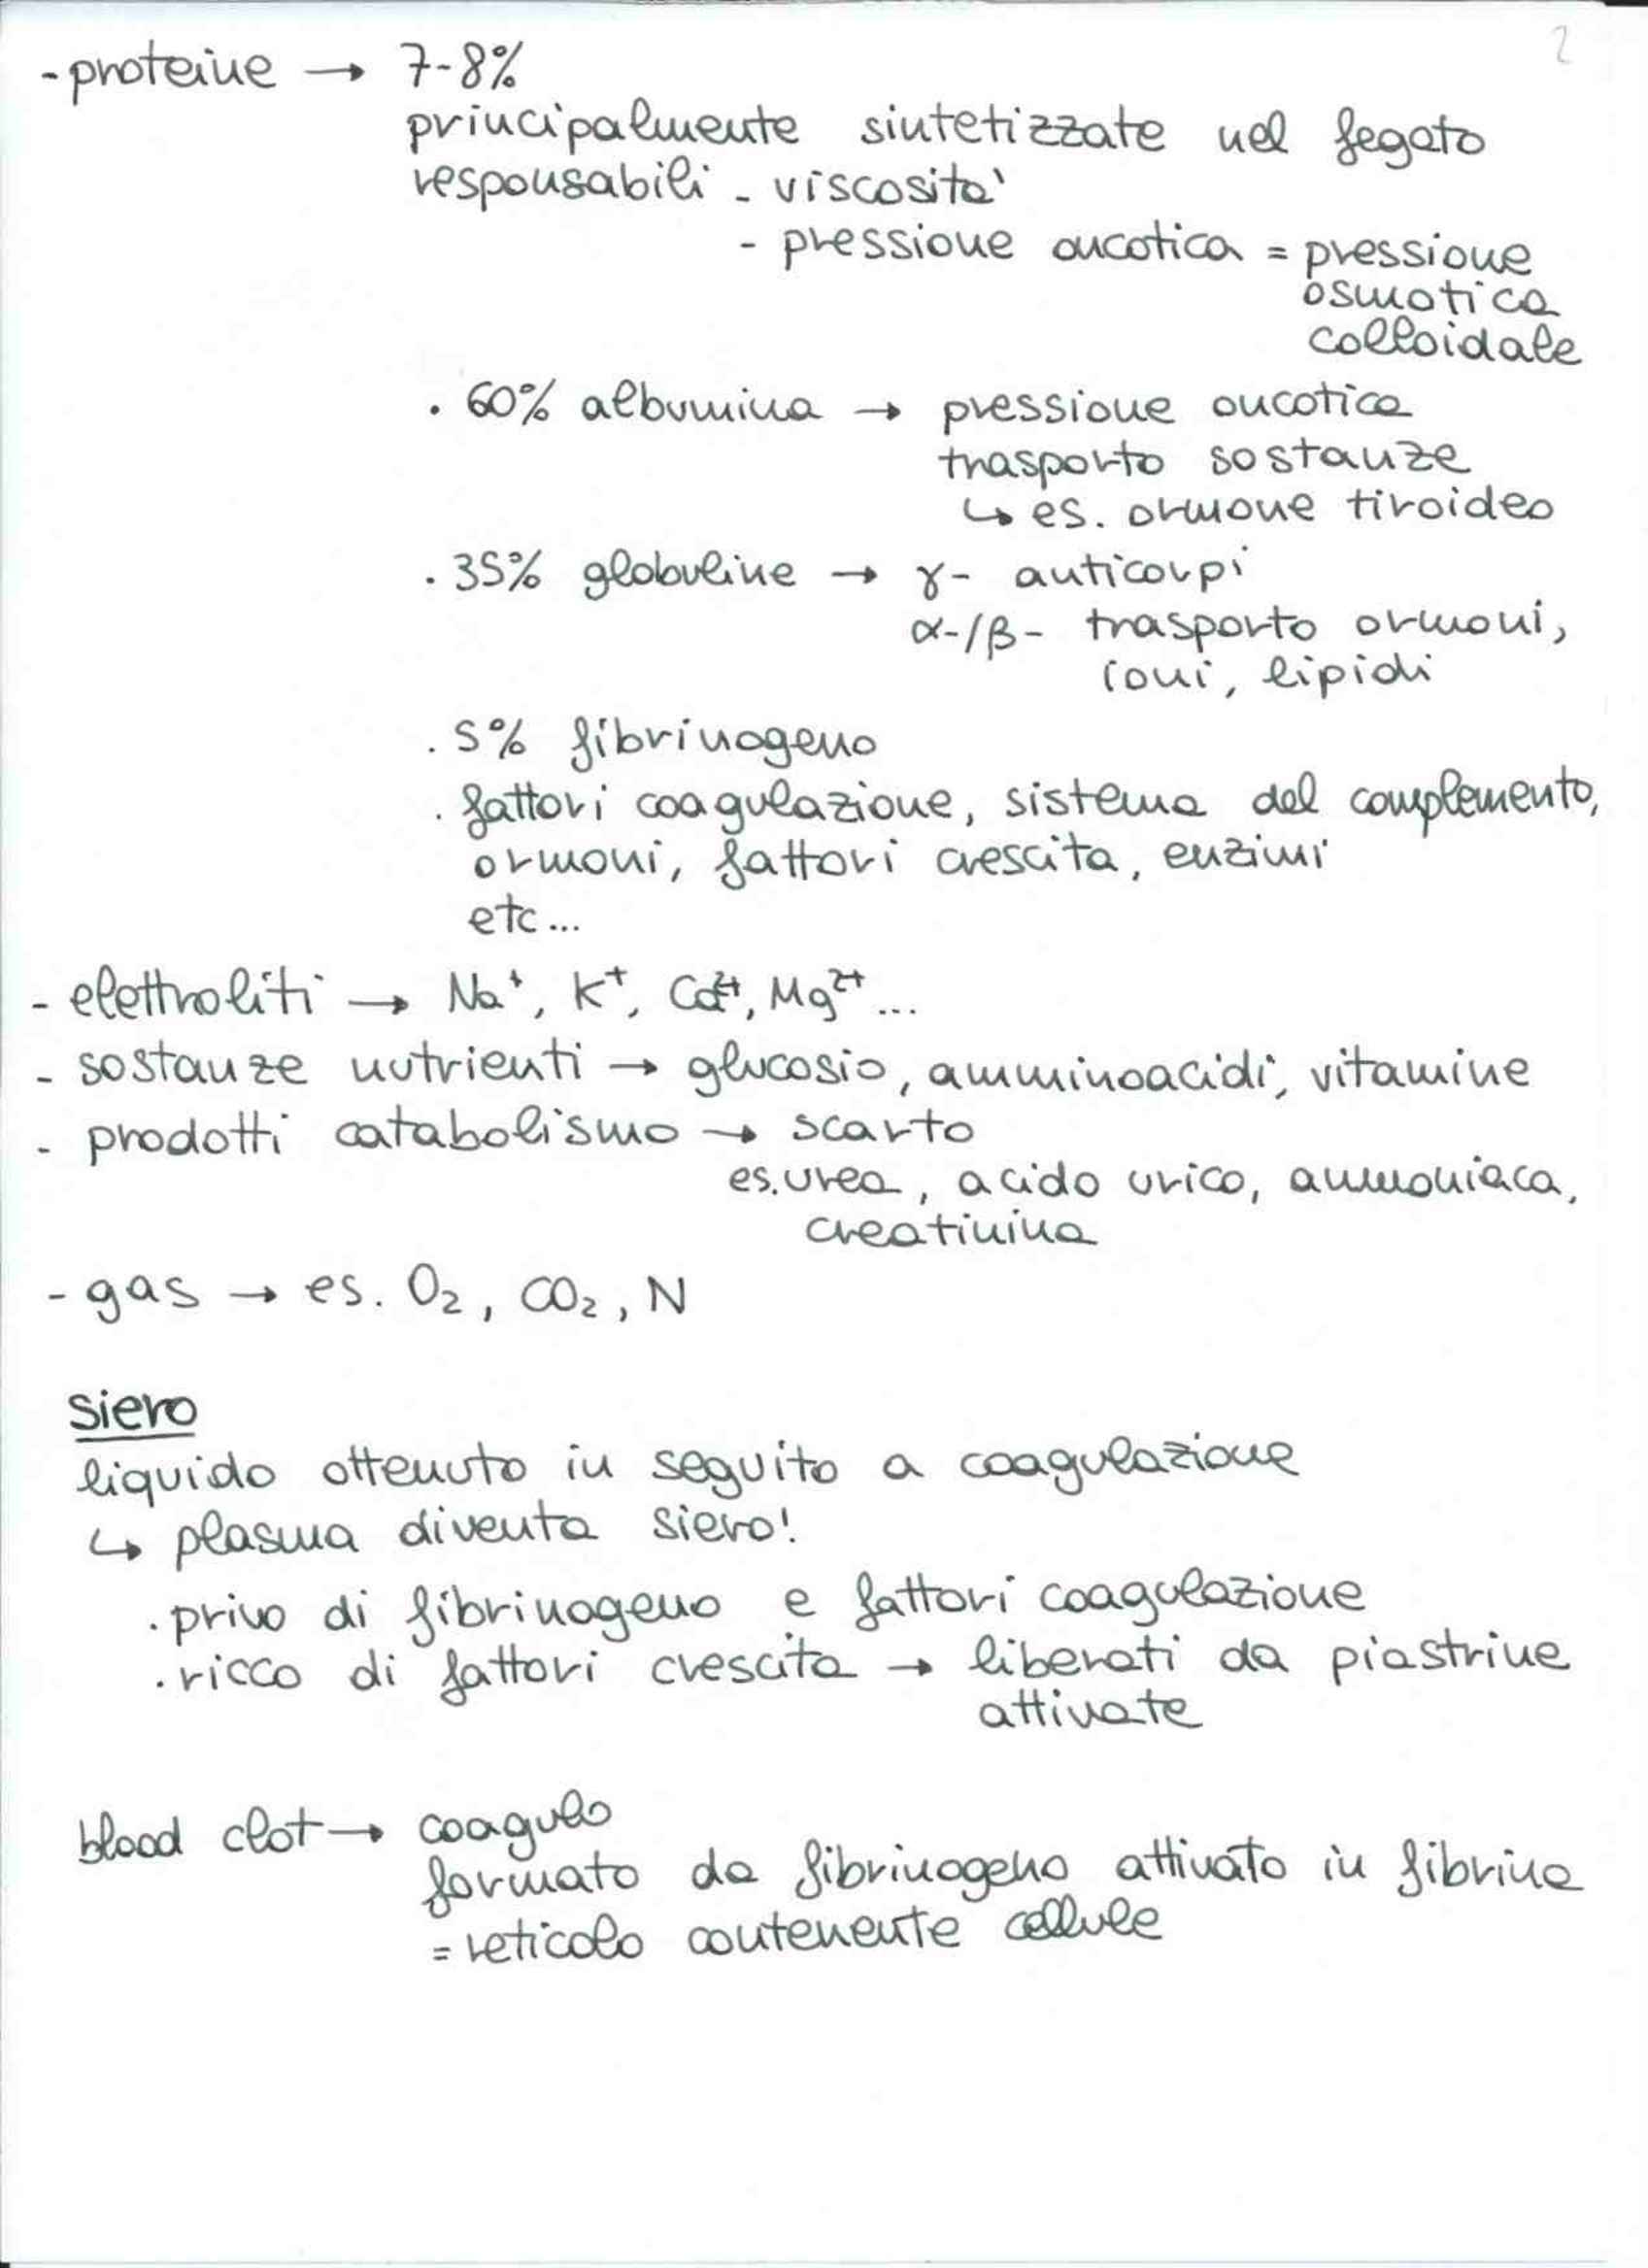 2
- proteine → 7-8%
principalmente sintetizzate nel fegato
responsabili - viscosita'
- pressione oncotica = pressione
osmotica
colloidale
. 60% albumina → pressione oncotica
trasporto sostanze
↳ es. ormone tiroideo
. 35% globuline → γ- anticorpi
α-/β- trasporto ormoni,
ioni, lipidi
. 5% fibrinogeno
. fattori coagulazione, sistema del complemento,
ormoni, fattori crescita, enzimi
etc...
- elettroliti → Na⁺, K⁺, Ca²⁺, Mg²⁺...
- sostanze nutrienti → glucosio, amminoacidi, vitamine
- prodotti catabolismo → scarto
es. urea, acido urico, ammoniaca,
creatinina
- gas → es. O₂, CO₂, N
siero
liquido ottenuto in seguito a coagulazione
↳ plasma diventa siero!
. privo di fibrinogeno e fattori coagulazione
. ricco di fattori crescita → liberati da piastrine
attivate
blood clot → coagulo
formato da fibrinogeno attivato in fibrina
= reticolo contenente cellule